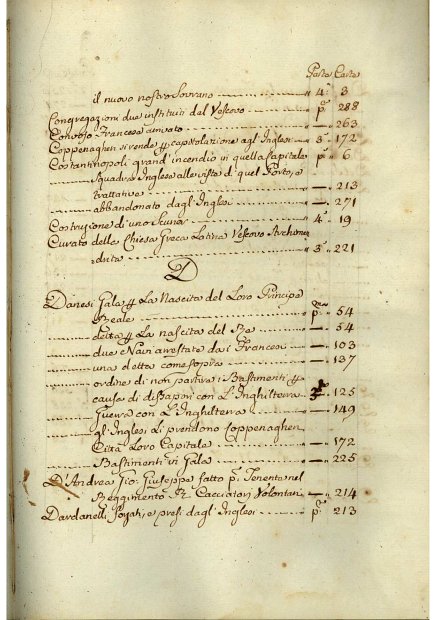 Parte Carte
il nuovo nostro Sovrano ---- " 4ª 3
Congregazioni due instituiti dal Vescovo ---- " pª 288
Convojo Francese arrivato ---- " — 263
Coppenaghen si rende capitolazione agl'Inglesi -- " 3ª " 172
Costantinopoli grand'incendio in quella Capitale " pª " 6
Squadra Inglese alle viste di quel Porto, e
trattative ---- " — " 213
abbandonato dagl'Inglesi ---- " — " 271
Costruzione di uno Scuna ---- " 4ª " 19
Curato della Chiesa Greca Latina Vescovo
---- " 3ª " 221
D
Danesi Gala La Nascita del Loro Principe
Reale ---- " pª " 54
detta La nascita del Re ---- " — " 54
due Navi arrestate dai Francesi ---- " — " 103
una detta come sopra ---- " — " 137
ordine di non partire i Bastimenti
causa di dissapori con L'Inghilterra " 3ª " 125
Guerra con L'Inghilterra ---- " — " 149
gl'Inglesi Li prendono Coppenaghen
Città Loro Capitale ---- " — " 172
Bastimenti in Gala ---- " — " 225
D'Andrea Gio: Giuseppe fatto pº Tenente nel
Reggimento Rº Cacciatori Volontari -- " — " 214
Dardanelli forzati, e presi dagl'Inglesi ---- " pª " 213